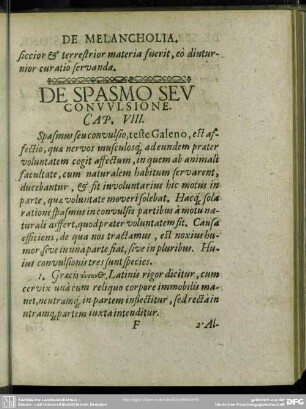 DE MELANCHOLIA.
siccior & terrestrior materia fuerit, eò diutur-
nior curatio servanda.
DE SPASMO SEV
CONVVLSIONE.
CAP. VIII.
Spasmus seu convulsio, teste Galeno, est af-
fectio, qua nervos musculosq́, ad eundem prater
voluntatem cogit affectum, in quem ab animali
facultate, cum naturalem habitum servarent,
ducebantur, & fit involuntarius hic motus in
parte, quæ voluntate moveri solebat. Hacq́, sola
ratione spasmus in convulsis partibus à motu na-
turali differt, quod prater voluntatem fit. Causa
efficiens, de qua nos tractamus, est noxius hu-
mor, sive in una parte fiat, sive in pluribus. Hu-
ius convulsionis tres sunt species.
1. Græcis Latinis rigor dicitur, cum
cervix unà cum reliquo corpore immobilis ma-
net, neutramq́, in partem inflectitur, sed recta in
utramq́, partem iuxta intenditur.
F 2. Al-